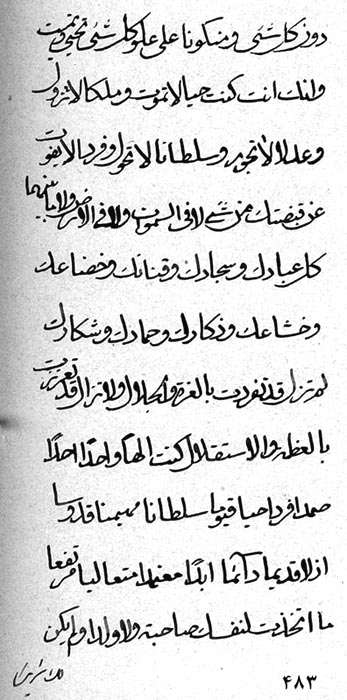 دون كل شیء ومتكونا علی علو كل شیء تحيی وتميت
وانك انت كنت حيا لا تموت وملكا لا تزول
وعدلا لا تجور وسلطانا لا تحول وفردا لا يفوت
عن قبضتك من شیء لا فی السموات ولا فی الارض ولا ما بينهما
كل عبادك وسجادك وقنائك وخضاعك
وخشاعك وذكارك وحمادك وشكارك
لم تزل قد تفردت بالعزة والجلال ولا تزال قد تعززت
بالعظمة والاستقلال كنت الها واحدا احدا
صمدا فردا حيا قيوما سلطانا مهيمنا قدوسا
ازلا قديما دآئما ابدا معتمدا متعاليا مرتفعا
ما اتخذت لنفسك صاحبة ولا ولدا ولم يكن
لك شريك
۴۸۳